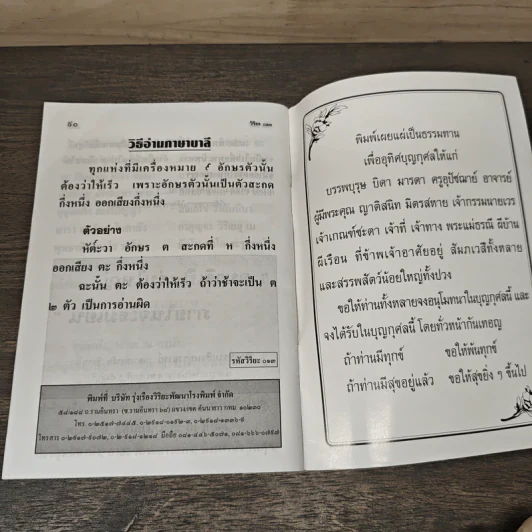 ๕๐
วิริยะ ๐๑๓
วิธีอ่านภาษาบาลี
ทุกแห่งที่มีเครื่องหมาย ร์ อักษรตัวนั้น
ต้องว่าให้เร็ว เพราะอักษรตัวนั้นเป็นตัวสะกด
กึ่งหนึ่ง ออกเสียงกึ่งหนึ่ง
ตัวอย่าง
อักษร ต สะกดที่ ห กึ่งหนึ่ง
ออกเสียง ตะ กึ่งหนึ่ง
ฉะนั้น ตะ ต้องว่าให้เร็ว ถ้าว่าช้าจะเป็น ต
๒ ตัว เป็นการอ่านผิด
รหัสวิริยะ ๐๑๓
พิมพ์ที่ บริษัท รุ่งเรืองวิริยะพัฒนาโรงพิมพ์ จำกัด
ถ.รามอินทรา แขวง/เขต คันนายาว กทม. ๑๐๒๓๐
โทร.
โทรสาร มือถือ
พิมพ์เผยแผ่เป็นธรรมทาน
เพื่ออุทิศบุญกุศลให้แก่
บรรพบุรุษ บิดา มารดา ครูอุปัชฌาย์ อาจารย์
ผู้มีพระคุณ ญาติสนิท มิตรสหาย เจ้ากรรมนายเวร
เจ้าเกณฑ์ชะตา เจ้าที่ เจ้าทาง พระแม่ธรณี ผีบ้าน
ผีเรือน ที่ข้าพเจ้าอาศัยอยู่ สัมภเวสีทั้งหลาย
และสรรพสัตว์น้อยใหญ่ทั้งปวง
ขอให้ท่านทั้งหลายจงอนุโมทนาในบุญกุศลนี้ และ
จงได้รับในบุญกุศลนี้ โดยทั่วหน้ากันเทอญ
ถ้าท่านมีทุกข์ ขอให้พ้นทุกข์
ถ้าท่านมีสุขอยู่แล้ว ขอให้สุขยิ่ง ๆ ขึ้นไป